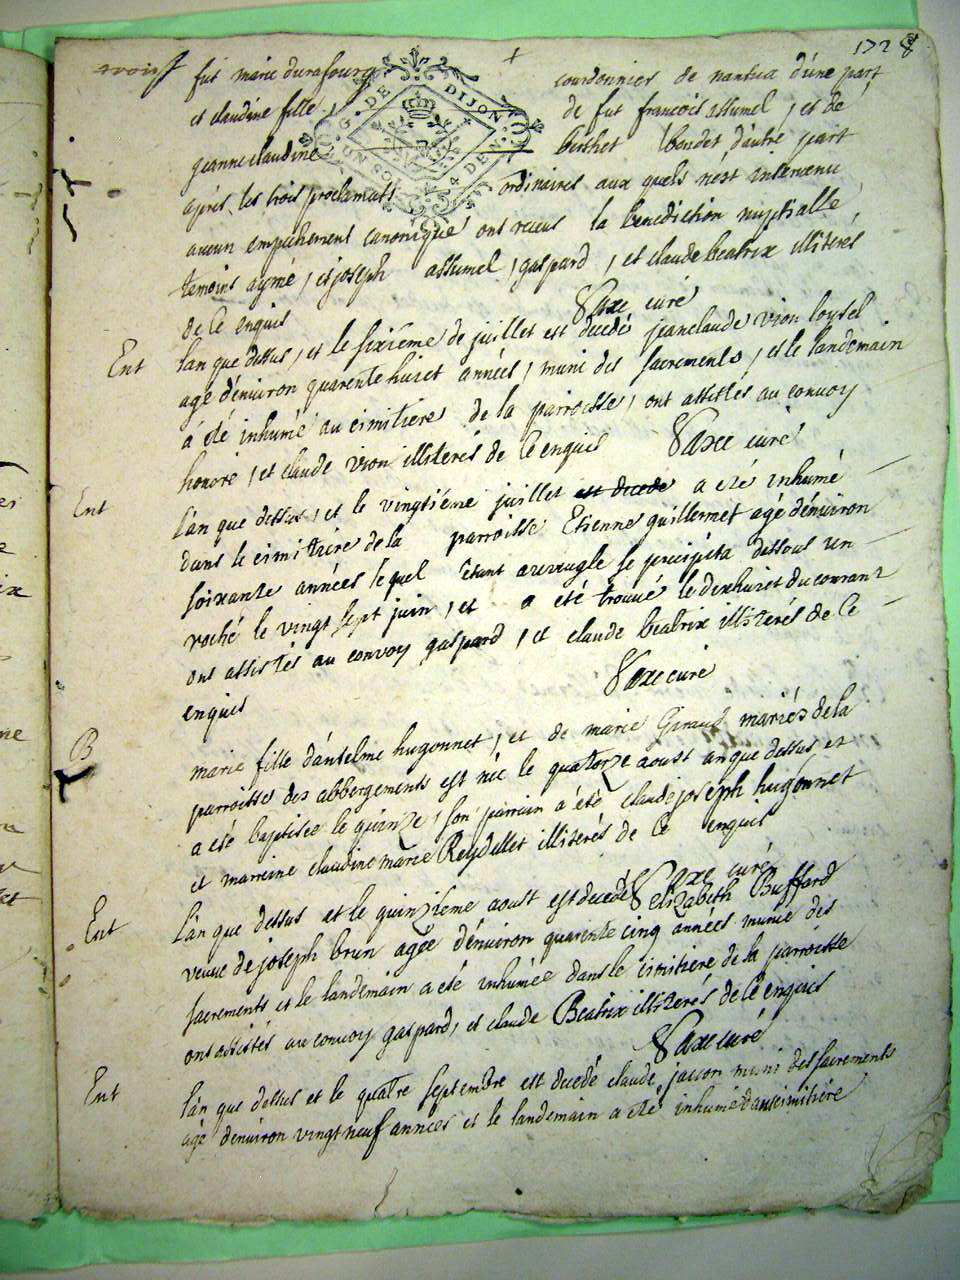 1728
fut marie durafourg courdonnier de nantua d'une part
et claudine fille de fut francois assumel, et de
jeanne claudine berthet baudet d'autre part
G. DE DIJON
apres les trois proclamats ordinaires aux quels n'est intervenu
aucun empechement canonique ont receus la benediction nuptialle
temoins aymé, et joseph assumel, gaspard, et claude beatrix illiterés
de ce enquis Saxe curé
Ent l'an que dessus, et le sixiéme de juillet est decedé jeanclaude vion loysel
agé d'environ quarente huict années, muni des sacrements, et le landemain
a eté inhumé au cimitiere de la parroisse, ont assistés au convoy
honoré, et claude vion illiterés de ce enquis Saxe curé
Ent l'an que dessus, et le vingtiéme juillet est decede a eté inhumé
dans le cimitiere de la parroisse Etienne guillermet agé d'environ
soixante années lequel etant aveuugle se precipita dessous un
roché le vingt sept juin, et a eté trouvé le dixhuict du courant
ont assistés au convoy gaspard, et claude beatrix illiterés de ce
enquis Saxe curé
B marie fille d'antelme hugonnet, et de marie Giraud mariés de la
parroisse des abbergements est née le quatorze aoust an que dessus et
a eté baptisée le quinze, son parrain a été claude joseph hugonnet
et marreine claudine marie Reydellet illiterés de ce enquis
Saxe curé
Ent l'an que dessus et le quinziéme aoust est decedé Elizabeth Buffard
veuve de joseph brun agée d'environ quarente cinq années munie des
sacrements et le landemain a eté inhumée dans le cimitiere de la parroisse
ont assistés au convoy gaspard, et claude Beatrix illiterés de ce enquis
Saxe curé
Ent l'an que dessus et le quatre septembre est decedé claude jacson muni des sacrements
agé d'environ vingt neuf années et le landemain a eté inhumé dans cimitiere